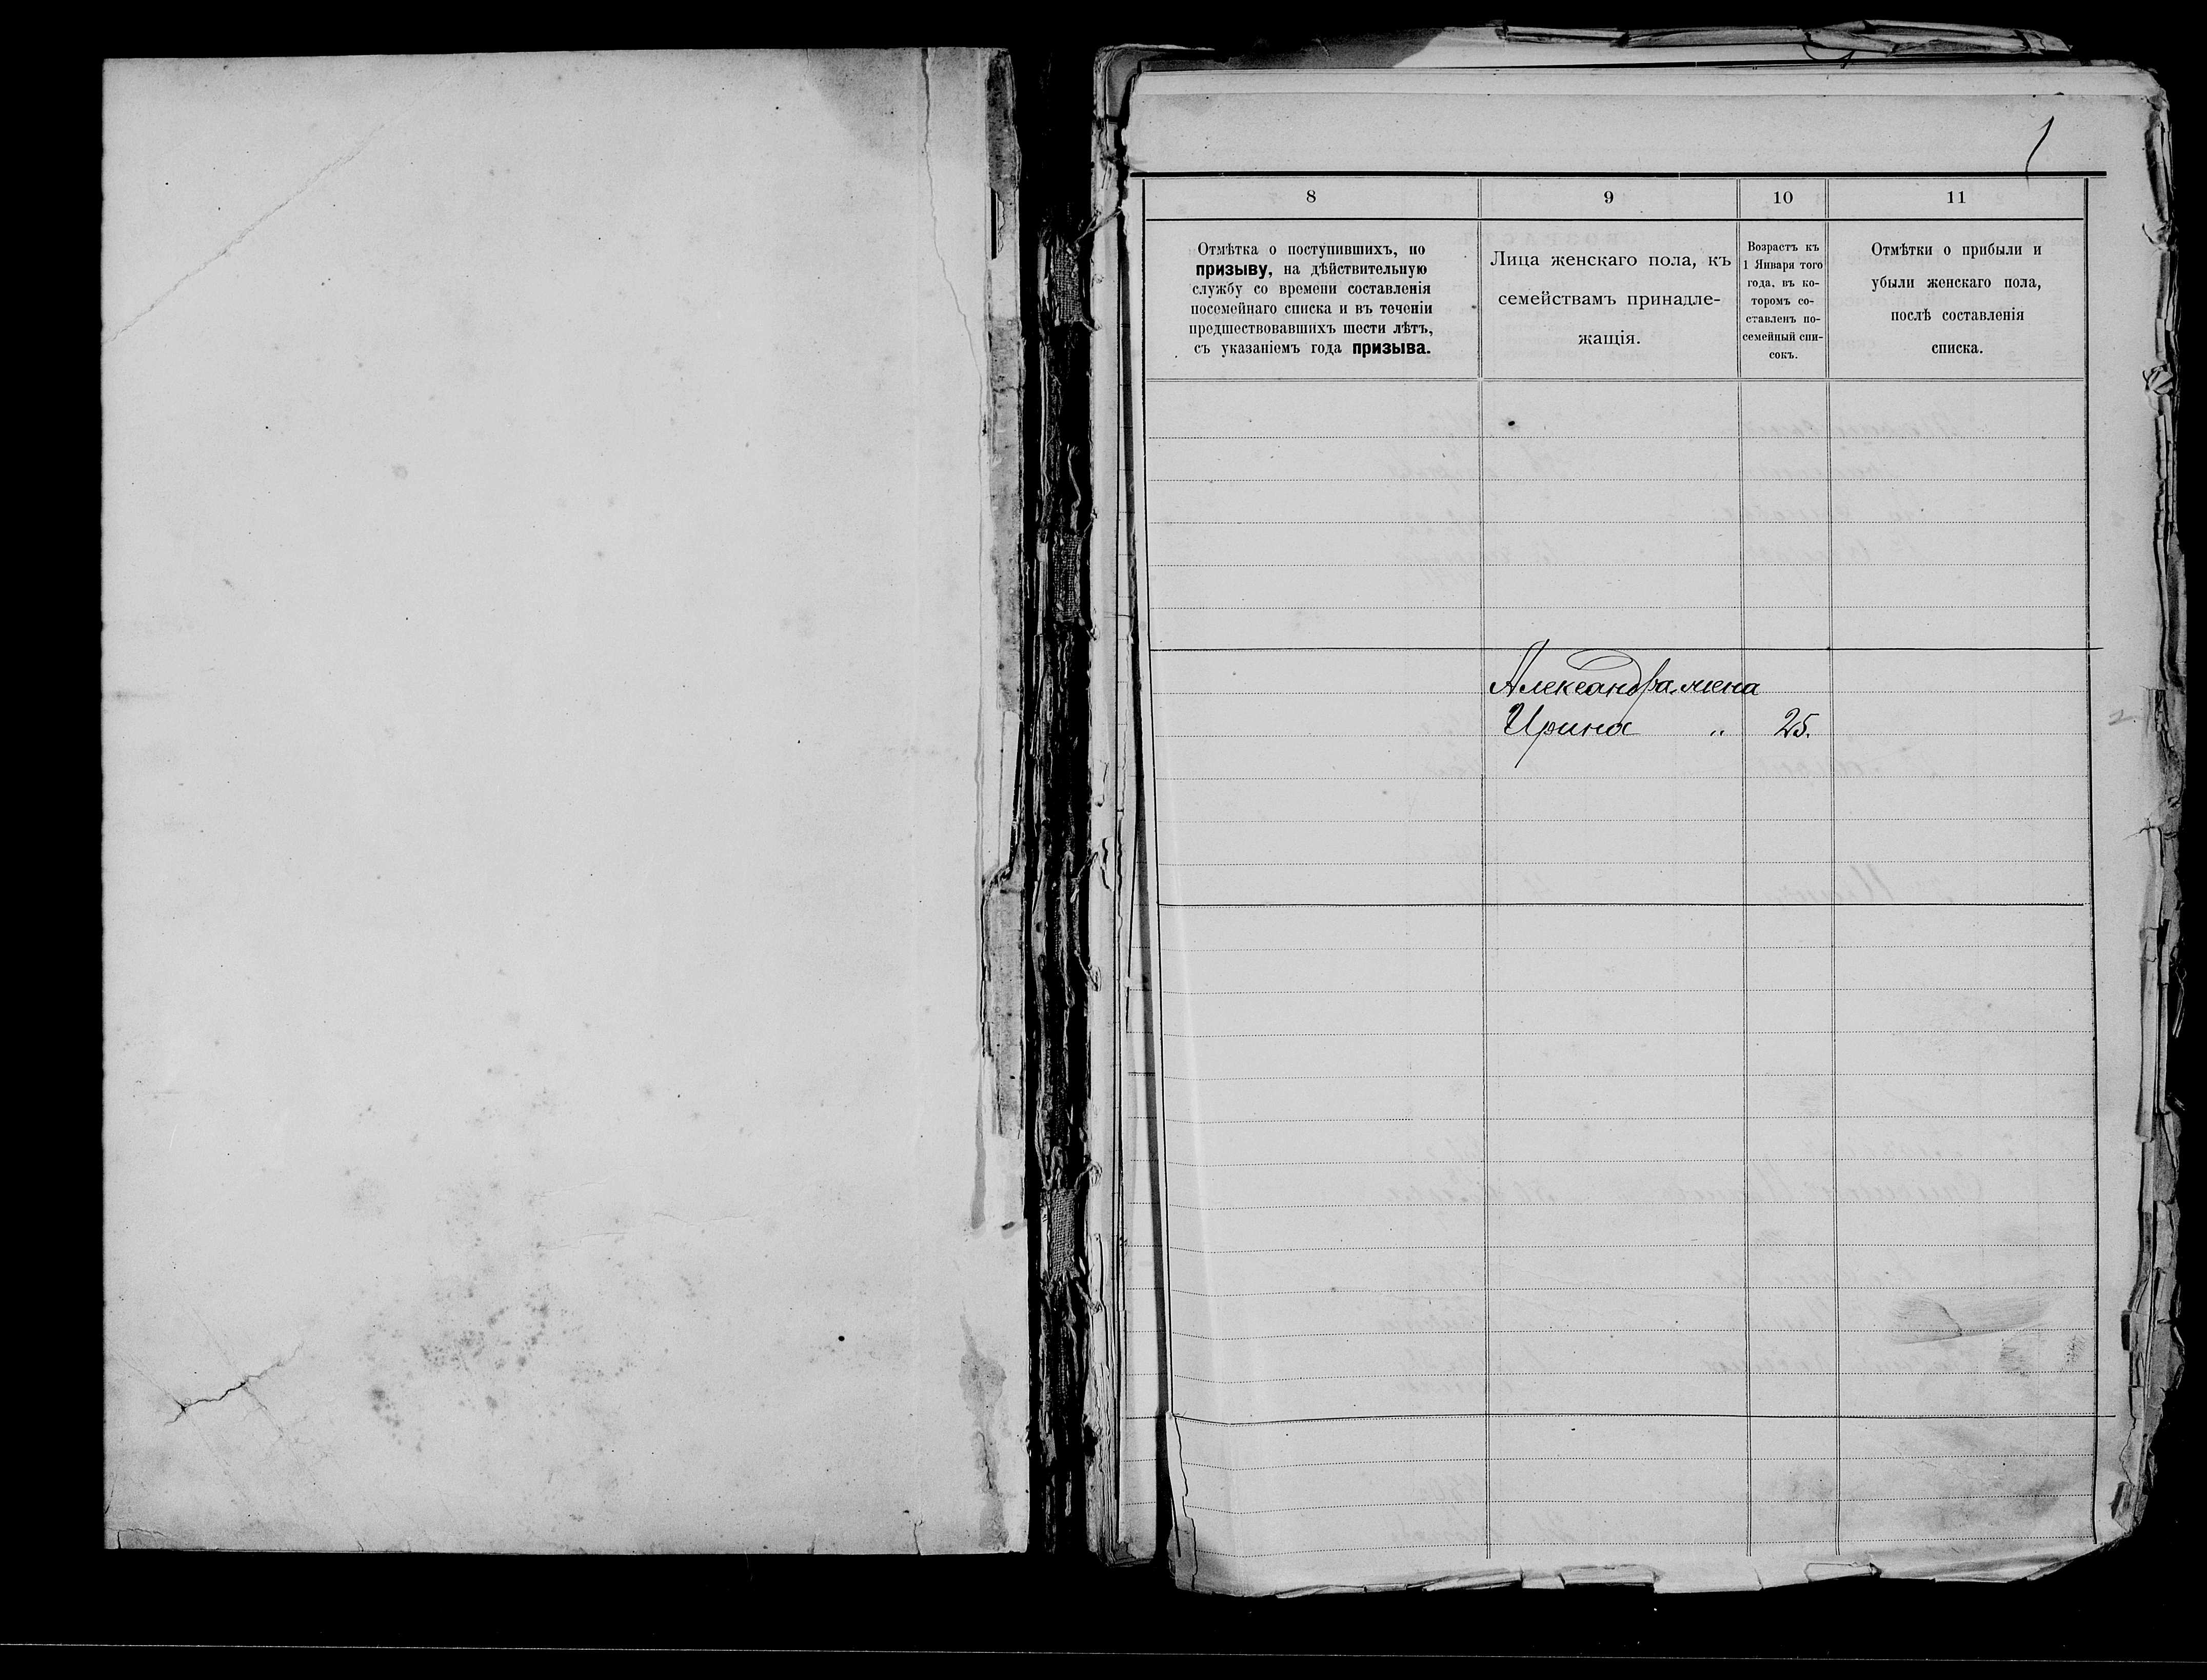 1
8 9 10 11
Отмѣтка о поступившихъ, по
призыву, на дѣйствительную
службу со времени составленія
посемейнаго списка и въ теченіи
предшествовавшихъ шести лѣтъ,
съ указаніемъ года призыва.
Лица женскаго пола, къ
семействамъ принадле-
жащія.
Возрастъ къ
1 Января того
года, въ ко-
торомъ со-
ставленъ по-
семейный спи-
сокъ.
Отмѣтки о прибыли и
убыли женскаго пола,
послѣ составленія
списка.
Александра жена
Ирина „ 25.